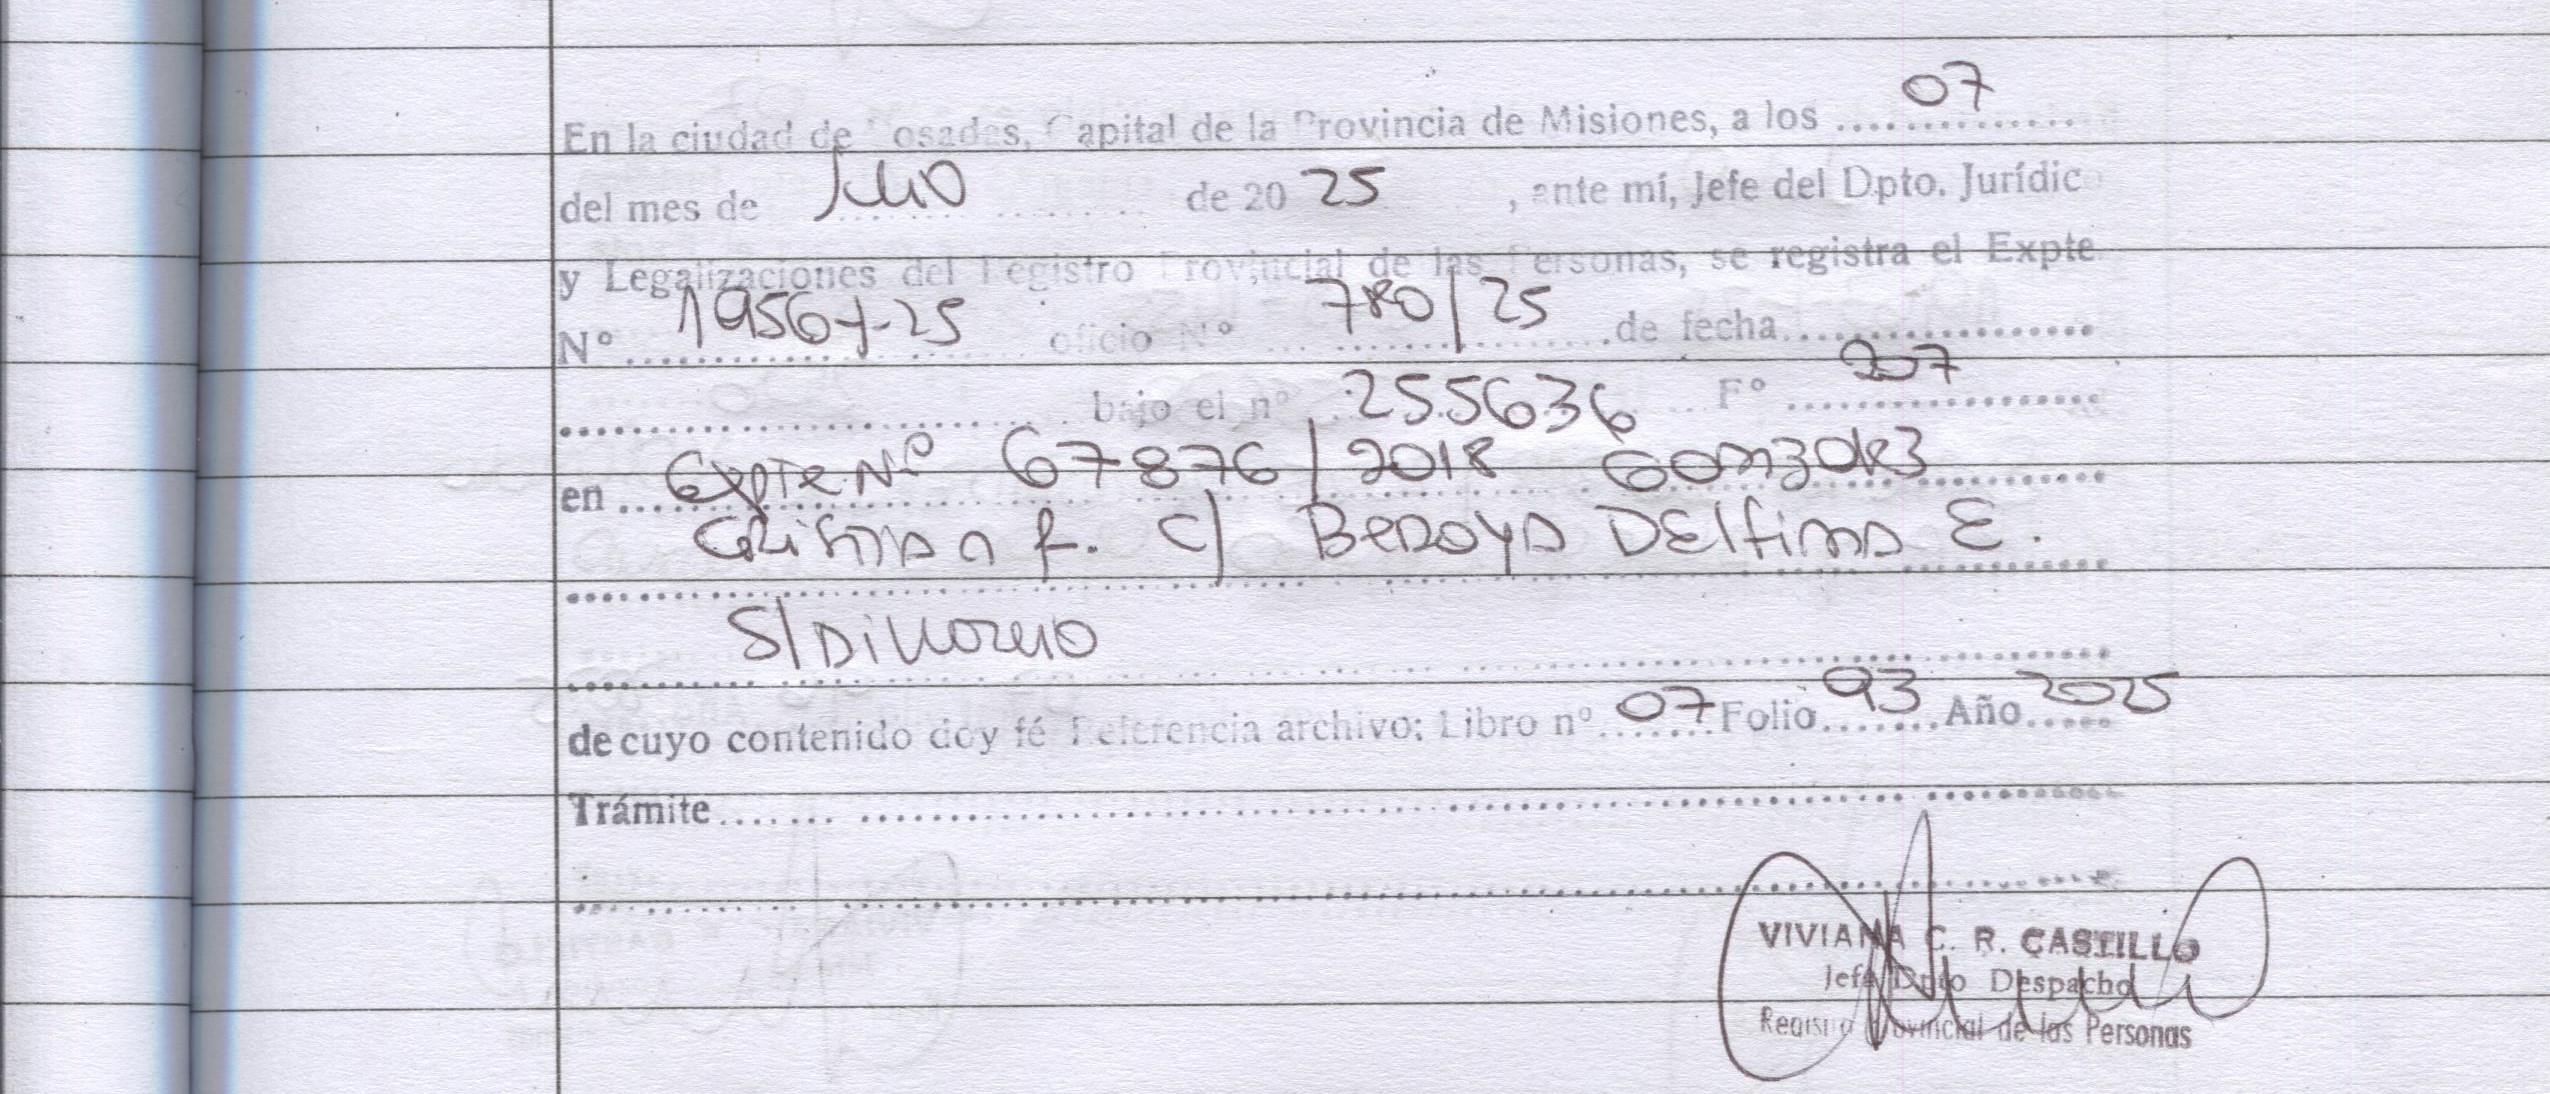 En la ciudad de Posadas, Capital de la Provincia de Misiones, a los 07
del mes de Julio de 20 25, ante mí, Jefe del Dpto. Jurídic
y Legalizaciones del Registro Provincial de las Personas, se registra el Expte
Nº 1956-J-25 oficio Nº 780/25 de fecha
bajo el nº 255636 Fº 207
en Expte Nº 67876/2018 Gonzalez
Cristian F. C/ Bedoya Delfina E.
S/ Divorcio
de cuyo contenido doy fé Referencia archivo: Libro nº 07 Folio 93 Año 2025
Trámite
VIVIANA C. R. CASTILLO
Jefe Dpto Despacho
Registro Provincial de las Personas